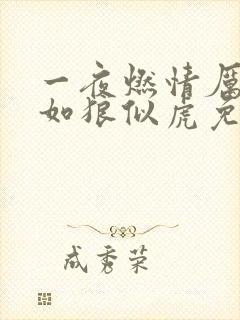 一夜燃情厲
如狼似虎免
成秀荣